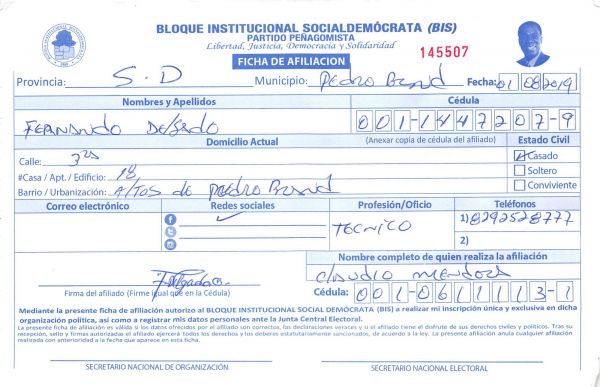 BLOQUE INSTITUCIONAL SOCIALDEMÓCRATA (BIS)
PARTIDO PEÑAGOMISTA
Libertad, Justicia, Democracia y Solidaridad
FICHA DE AFILIACION
145507
Provincia: S.D Municipio: Pedro Brand Fecha: 01 08 2019
Nombres y Apellidos Cédula
Fernando Delgado 001-1447207-9
Domicilio Actual (Anexar copia de cédula del afiliado) Estado Civil
Calle: 3ra Casado
#Casa / Apt. / Edificio: 18 Soltero
Barrio / Urbanización: Altos de Pedro Brand Conviviente
Correo electrónico Redes sociales Profesión/Oficio Teléfonos
Tecnico 1) 8292528777
2)
Nombre completo de quien realiza la afiliación
Claudio Mendoza
Firma del afiliado (Firme igual que en la Cédula) Cédula: 001-061113-1
Mediante la presente ficha de afiliación autorizo al BLOQUE INSTITUCIONAL SOCIAL DEMÓCRATA (BIS) a realizar mi inscripción única y exclusiva en dicha
organización política, así como a registrar mis datos personales ante la Junta Central Electoral.
La presente ficha de afiliación es válida si los datos ofrecidos por el afiliado son correctos, las declaraciones veraces y si el afiliado tiene el disfrute de sus derechos civiles y políticos. Tras su
recepción, sello y firmas autorizadas el afiliado ejercerá todos los derechos y los deberes estatutariamente sancionados, de acuerdo a la ley. La presente afiliación anula cualquier afiliación
realizada con anterioridad a la fecha que aparece en esta ficha.
SECRETARIO NACIONAL DE ORGANIZACIÓN SECRETARIO NACIONAL ELECTORAL